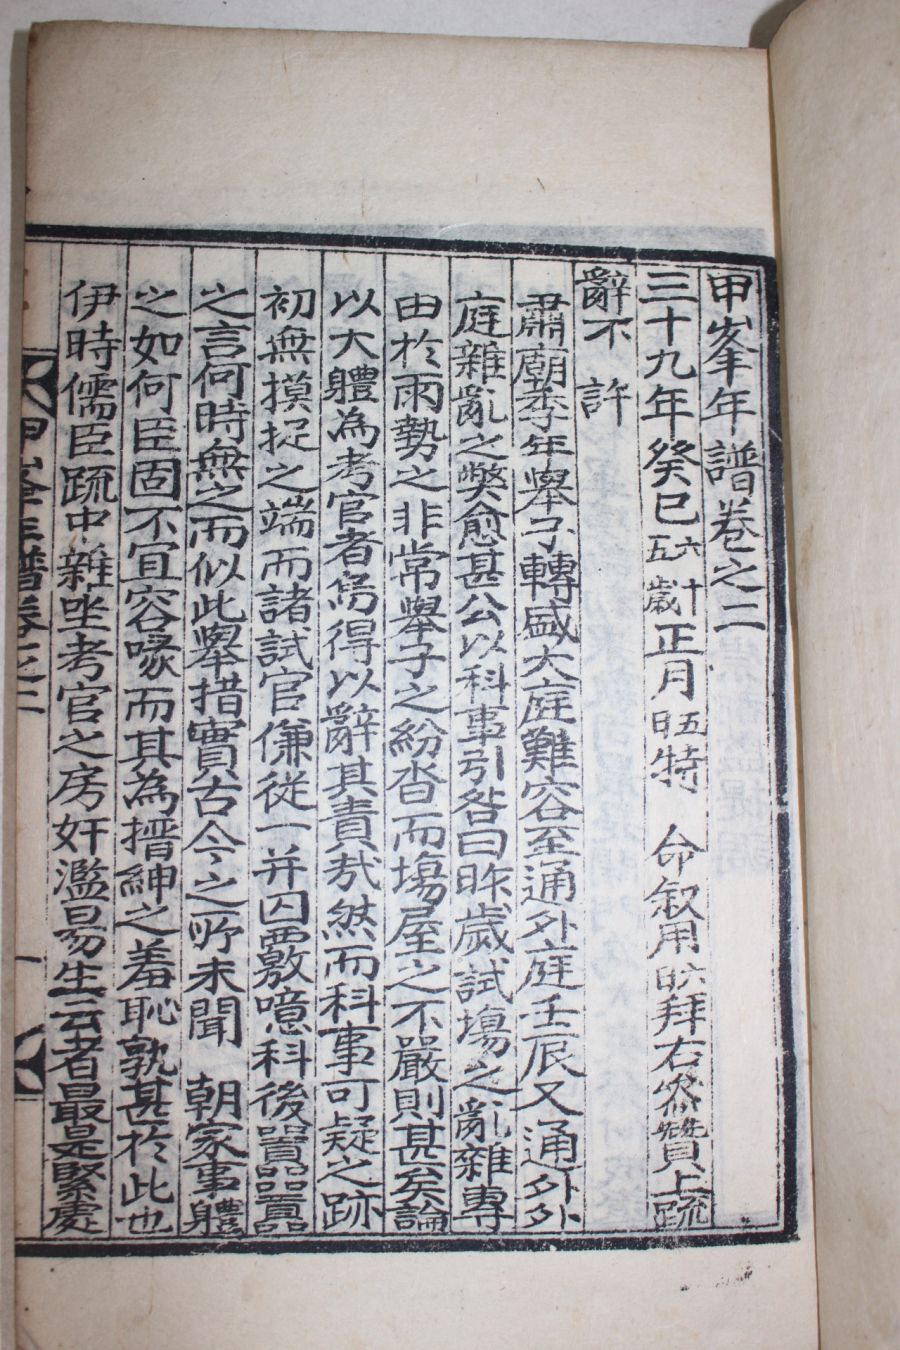 甲峯年譜卷之二
三十九年癸巳六十五歲正月五日特 命叙用六日拜右參贊上疏
辭不 許
肅廟季年擧子轉盛大庭難容至通外庭壬辰又通外外
庭雜亂之獘愈甚公以科事引咎曰昨歲試場之亂雜專
由於雨勢之非常擧子之紛沓而塲屋之不嚴則甚矣論
以大體為考官者烏得以辭其責㢤然而科事可疑之跡
初無摸捉之端而諸試官傔從一并囚覈噫科後囂囂
之言何時無之而似此擧措實古今之所未聞 朝家事體
之如何臣固不宜容喙而其為搢紳之羞恥孰甚於此也
伊時儒臣疏中雜坐考官之房奸濫易生云者最是緊處
甲峯年譜卷之二
一